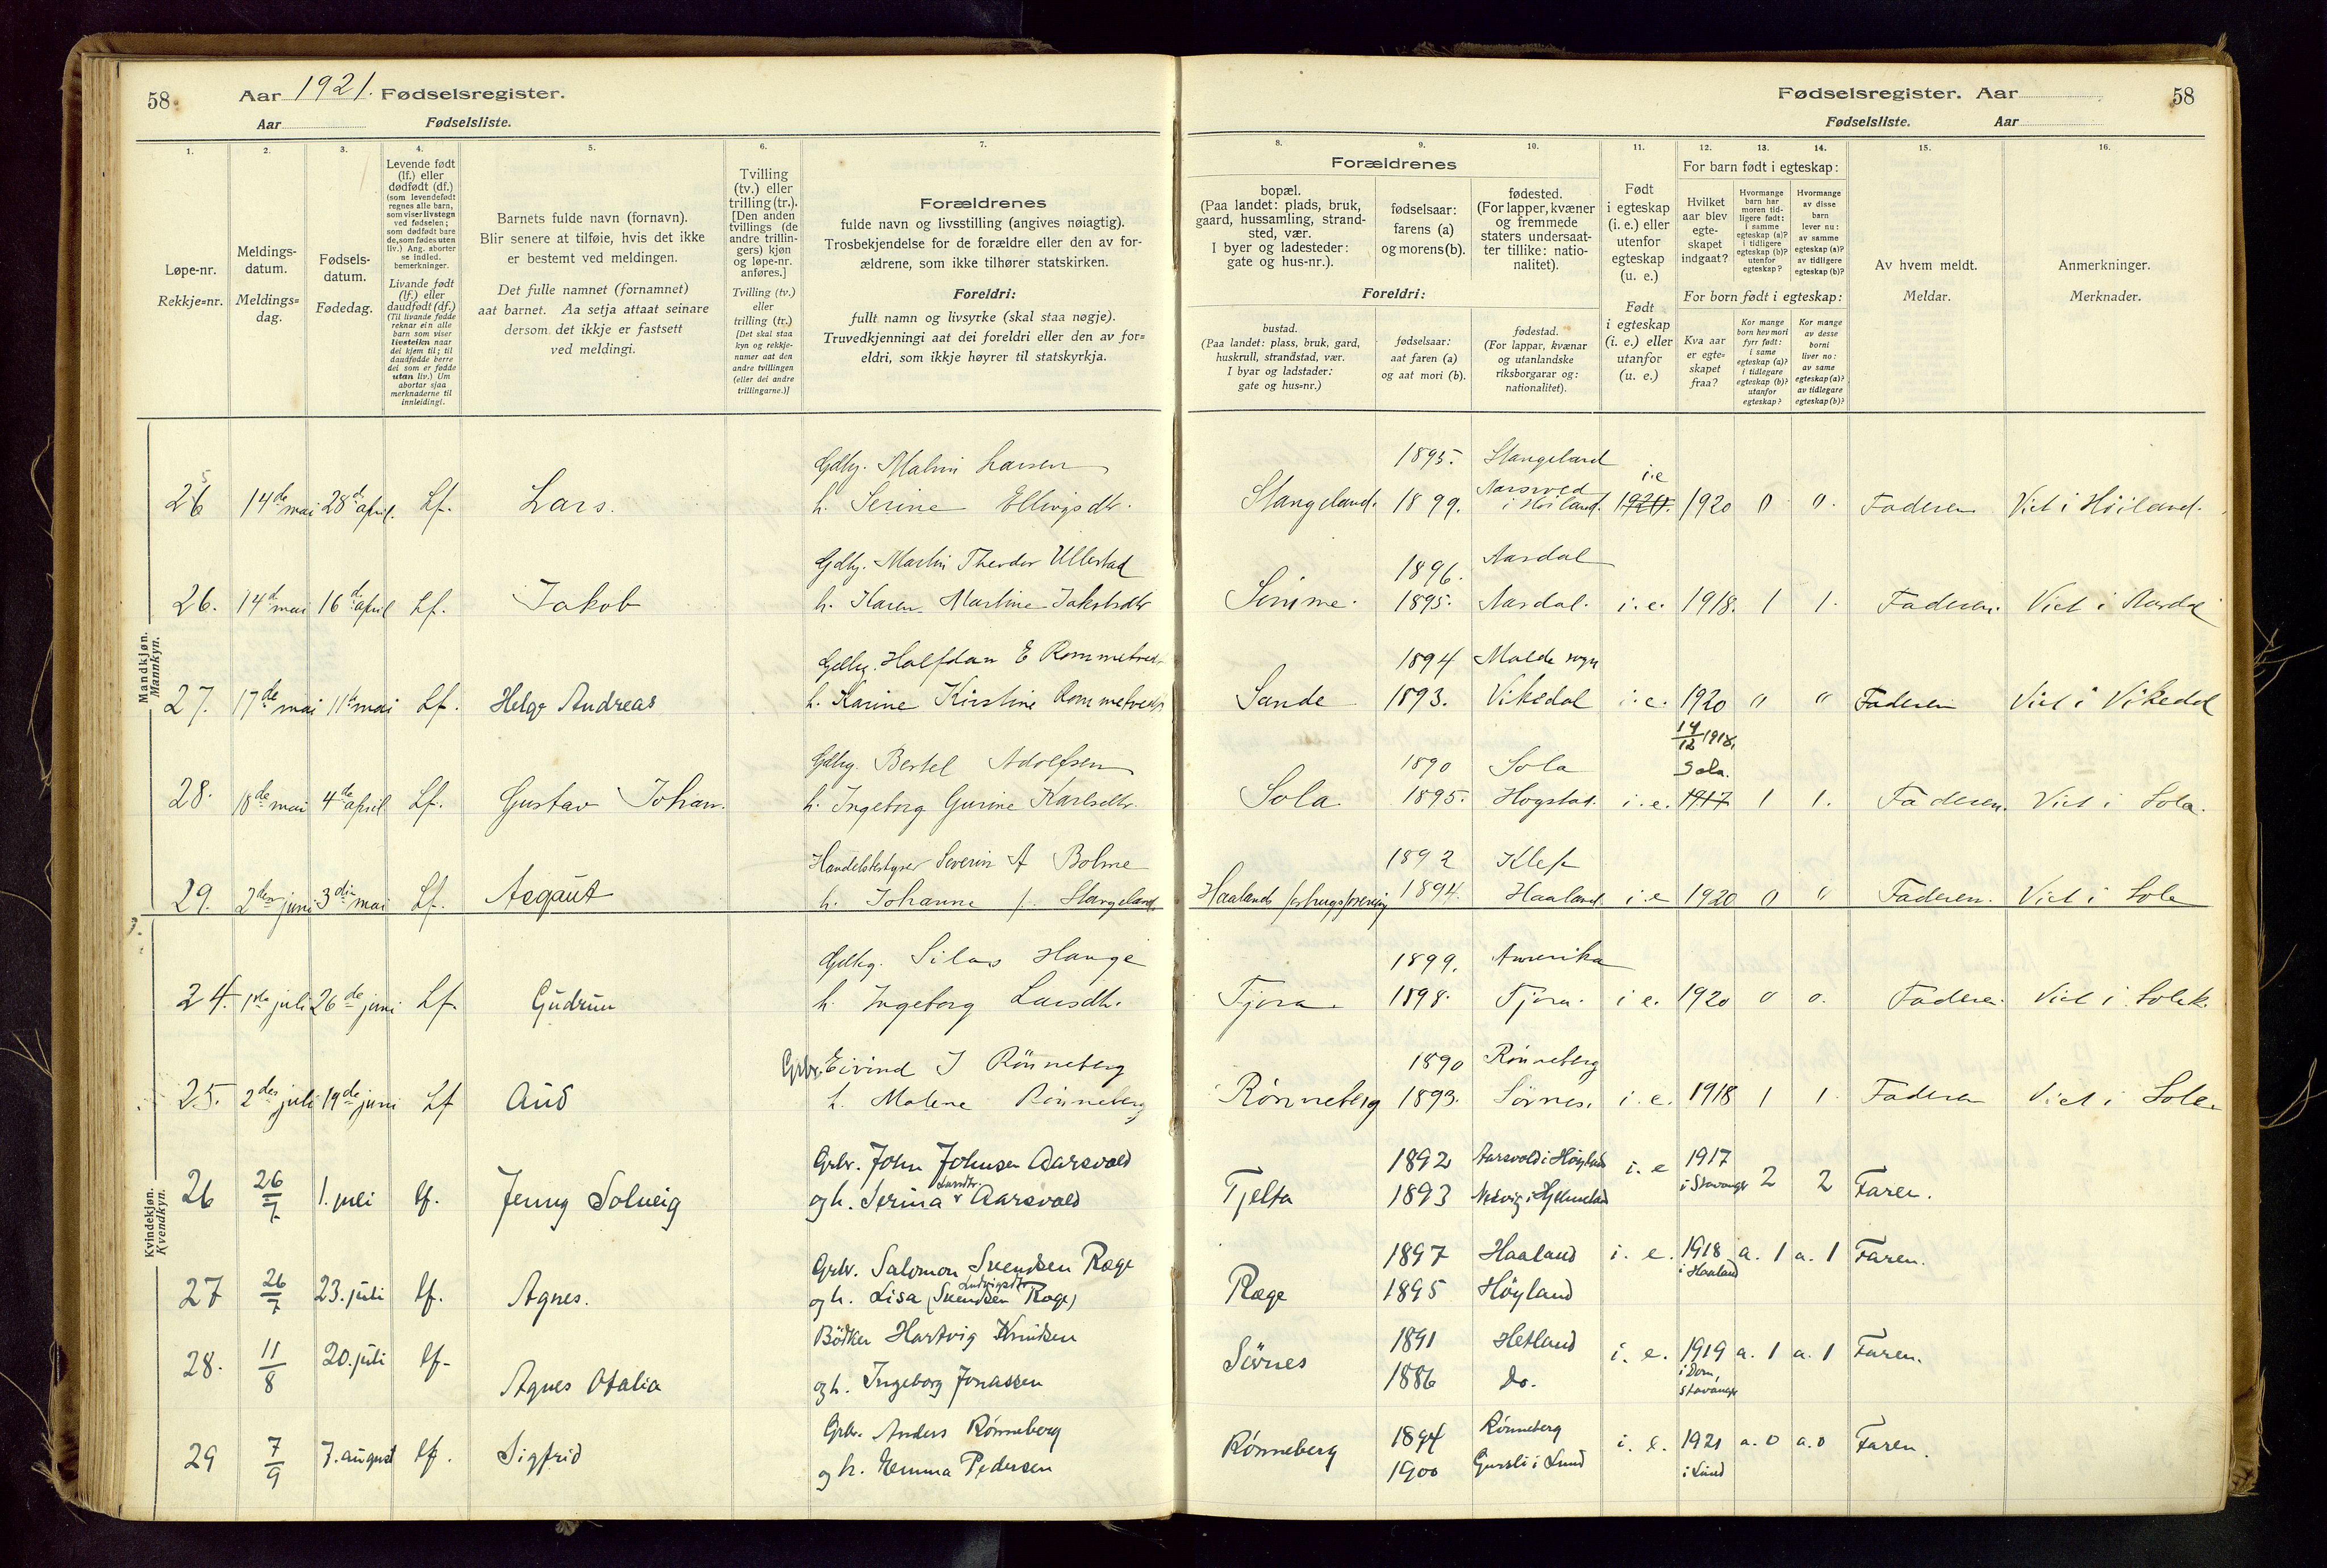 58
Aar 1921. Fødselsregister.
Aar Fødselsliste.
Fødselsregister. Aar
58
Fødselsliste. Aar
1.
Løpe-nr.
Rekkje=nr.
2.
Meldings-
datum.
Meldings=
dag.
3.
Fødsels-
datum.
Fødedag.
4.
Levende født
(lf.) eller
dødfødt (df.)
(som levendefødt
regnes alle barn,
som viser livstegn
ved fødselen;
som dødfødt bare
de, som fødes uten
liv.) Ang. aborter
se indled.
bemerkninger.
Livande født
(lf.) eller
daudfødt (df.)
(Til livande fødde
reknar ein alle
barn som viser
livsteikn naar
dei kjem til; til
daudfødde berre
dei som er fødde
utan liv.) Um
abortar sjaa
merknaderne til
innleidingi.
5.
Barnets fulde navn (fornavn).
Blir senere at tilføie, hvis det ikke
er bestemt ved meldingen.
Det fulle namnet (fornamnet)
aat barnet. Aa setja attaat seinare
dersom det ikkje er fastsett
ved meldingi.
6.
Tvilling
(tv.) eller
trilling (tr.).
[Den anden
tvillings (de
andre trillin-
gers) kjøn
og løpe-nr.
anføres.]
Tvilling (tv.)
eller
trilling (tr.)
[Det skal staa
kyn og rekkje-
numer aat den
andre tvillingen
(eller dei andre
trillingarne.)]
7.
Forældrenes
fulde navn og livsstilling (angives nøiagtig).
Trosbekjendelse for de forældre eller den av for-
ældrene, som ikke tilhører statskirken.
Foreldri:
fullt namn og livsyrke (skal staa nøgje).
Truvedkjenningi aat dei foreldri eller den av for=
eldri, som ikkje høyrer til statskyrkja.
8.
Forældrenes
bopæl.
(Paa landet: plads, bruk,
gaard, hussamling, strand-
sted, vær.
I byer og ladesteder:
gate og hus-nr.).
Foreldri:
bustad.
(Paa landet: plass, bruk, gard,
huskrull, strandstad, vær.
I byar og ladstader:
gate og hus=nr.)
9.
fødselsaar:
farens (a)
og morens(b).
fødselsaar:
aat faren (a)
og aat mori (b).
10.
fødested.
(For lapper, kvæner
og fremmede
staters undersaat-
ter tillike: natio-
nalitet).
fødestad.
(For lappar, kvænar
og utanlandske
riksborgarar og:
nationalitet).
11.
Født
i egteskap
(i. e.) eller
utenfor
egteskap
(u. e.)
Født
i egteskap
(i. e.) eller
utanfor
(u. e.)
12.
13.
14.
For barn født i egteskap:
Hvilket
aar blev
egte-
skapet
indgaat?
Hvormange
barn har
moren tid-
ligere født:
i samme
egteskap (a)?
i tidligere
egteskap (b)?
utenfor
egteskap?
Hvormange
av disse
barn
lever nu:
av samme
egteskap (a)?
av tidligere
egteskap (b)?
For born født i egteskap:
Kva aar
er egte=
skapet
fraa?
Kor mange
born hev mori
fyrr født:
i same
egteskap (a)?
i tidlegare
egteskap (b)?
utanfor
egteskap?
Kor mange
av desse
borni
liver no:
av same
egteskap (a)?
av tidlegare
egteskap (b)?
15.
Av hvem meldt.
Meldar.
16.
Anmerkninger.
Merknader.
Mandkjøn.
Mannkyn.
Gdbg. Malvin Larsen 1895. Stangeland i.e
26 14de mai 28de april. Lf. Lars. h. Serine Ellingsdtr. Stangeland. 1899. i Høiland. 1920. 1920 0 0. Faderen Viet i Höiland.
Gdbg. Martin Theodor Ullestad 1896. Aardal
26. 14de mai 16de april Lf. Jakob h. Karen Martine Jakobsdtr Sømme. 1895. Aardal. i. e. 1918. 1 1. Faderen. Viet i Aardal
Gdbg. Halfdan E Rommetvedt 1894 Molde sogn
27. 17de mai 11te mai Lf. Helge Andreas h. Karine Kirstine Rommetvedt Sande 1893. Vikedal i. e. 1920 " " Faderen Viet i Vikedal
14/12 1918.
Gdbg. Bertel Adolfsen 1890 Sola Sola.
28. 18de mai 4de april Lf. Gustav Johan. h. Ingeborg Gurine Karlsdtr. Sola 1895. Hogstad. i. e. 1917 1 1. Faderen. Viet i Sola.
Handelsbestyrer Severin A Bolme 1892 Klep
29. 2den juni 3die mai Lf. Asgaut h. Johanne f. Stangeland. Haalands forbrugsforening 1894. Haaland. i. e 1920 0 " Faderen. Viet i Sola
Kvindekjøn.
Kvendkyn.
Gdbg. Silas Hauge 1899. Amerika
24. 1ste juli 26de juni Lf. Gudrun h. Ingeborg Larsdtr. Tjora. 1898. Tjora. i e. 1920 0 0. Faderen. Viet i Sola k.
Grbr. Eivind J Rönneberg 1890 Rönneberg
25. 2den juli 19de juni Lf Aud h. Malene Rönneberg Rönneberg 1893. Sörnes. i. e. 1918 1 1. Faderen Viet i Sola.
Grbr. John Johnsen Aarsvold 1892 Aarsvold i Høyland i. e 1917
26 26/7 1. juli lf. Jenny Solveig og h. Serina Aarsvold Tjelta 1893 i Hjelmeland i Stavanger 2 2 Faren.
Grbr. Salomon Svendsen Ræge 1897 Haaland i. e. 1918 a. 1 a. 1 Faren.
27 26/7 23. juli lf. Agnes. og h. Lisa (Svendsen Ræge) Ludvigsdtr Ræge 1895 Høyland i Haaland
Bödker Hartvig Knudsen 1891 Hetland
28. 11/8 20. juli lf. Agnes Otalia og h. Ingeborg Jonassen Sörnes 1886 Do. i. e. 1919 a. 1 a. 1 Faren.
i Dom,
Stavanger
Grbr. Anders Rönneberg 1894 Rønneberg
29 7/9 7. august lf. Sigfrid og h. Emma Pedersen Rönneberg 1900 i Lund i. e. 1921 a. 0 a. 0 Faren.
i Lund